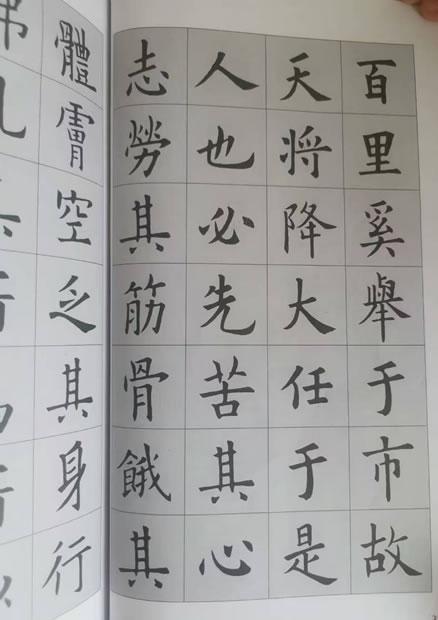 百里奚舉于市故
天将降大任于是
人也必先苦其心
志勞其筋骨餓其
體膚空乏其身行